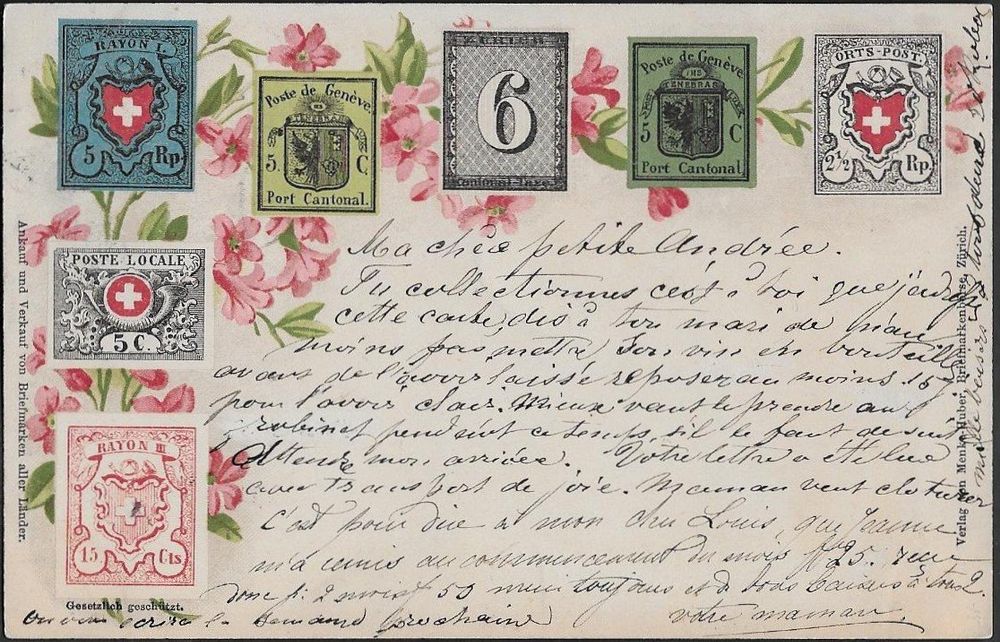 RAYON I.
5 Rp.
Poste de Genève
POST TENEBRAS
5. C.
Port Cantonal.
ZÜRICH
6
Cantonal-Taxe
Poste de Genève
POST TENEBRAS
5 C
Port Cantonal
ORTS-POST.
2½ Rp.
POSTE LOCALE
5 C.
RAYON III
15 Cts
Gesetzlich geschützt.
Ankauf und Verkauf von Briefmarken aller Länder.
Verlag von Menke-Huber, Briefmarkenbörse, Zürich.
Ma chée petite Andrée.
Tu collectionnes c'est à toi que j'ad
cette carte, dis à ton mari de n'au
moins pas mettre son vin en bouteill
avant de l'avoir laissé reposer au moins 15 j
pour l'avoir clair. Mieux vaut le prendre au
robinet pendant ce temps, s'il le faut
attendre mon arrivée. Votre lettre a été lue
avec transport de joie. Maman veut cloturer
C'est pour dire à mon cher Louis, que Jeanne
m'a remis au commencement du mois 25.
donc 50 toujours et à tous
votre maman
écrire la semaine prochaine
mille baisers